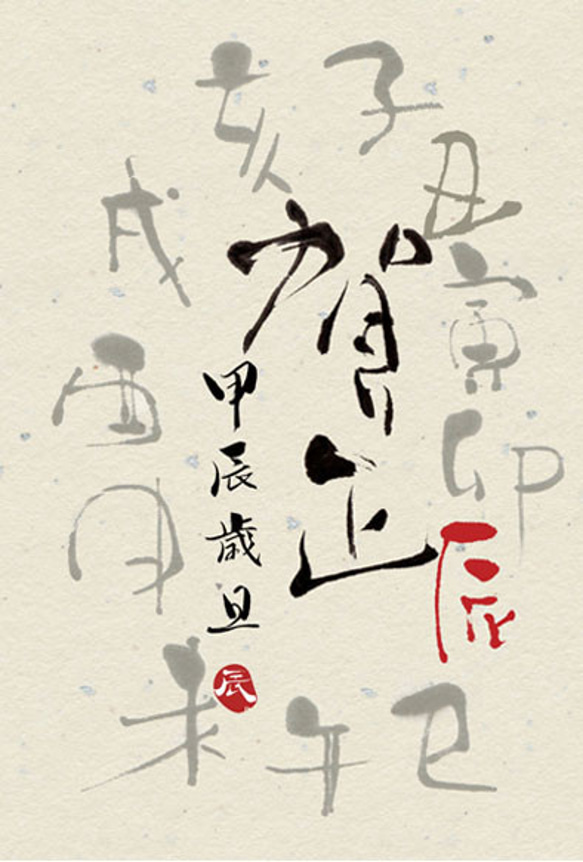 賀正
甲辰歳旦
辰
子
丑
寅
卯
辰
巳
午
未
申
酉
戌
亥